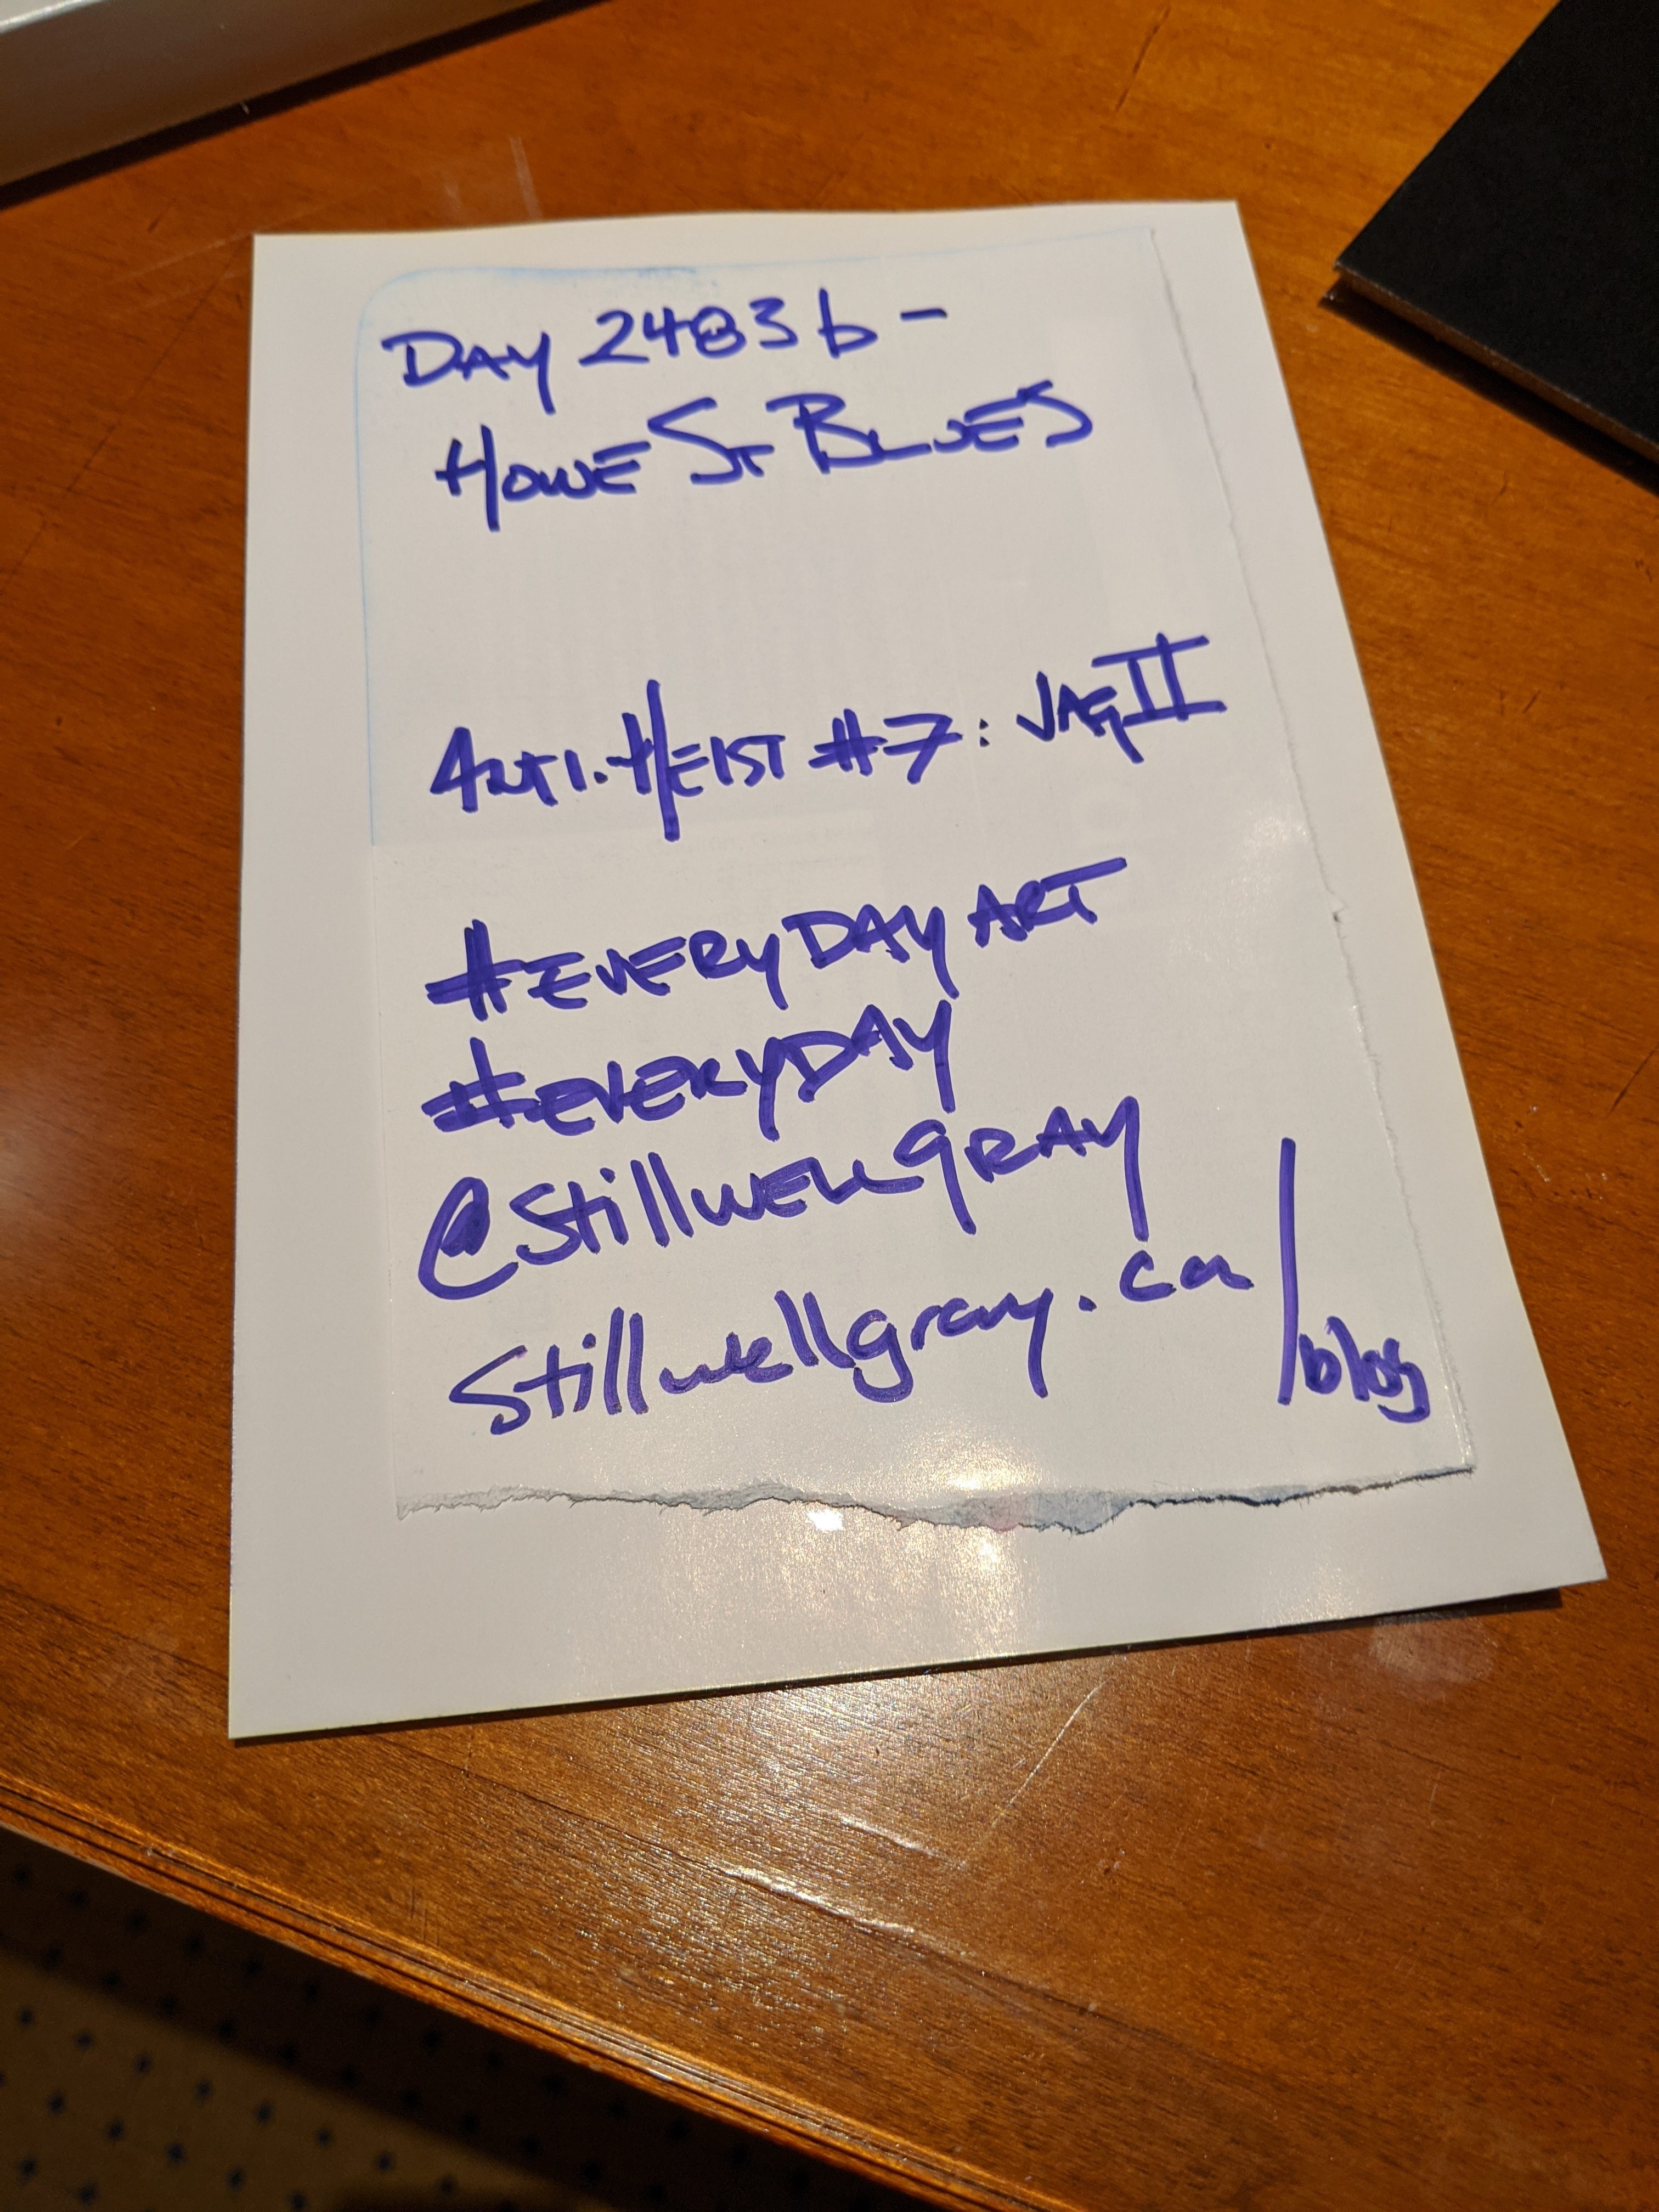 DAY 2483b -
HOWE ST BLUES
ANTI-HEIST #7: JAG II
#EVERYDAYART
#EVERYDAY
@StillwellgRAY
Stillwellgray.ca/blog